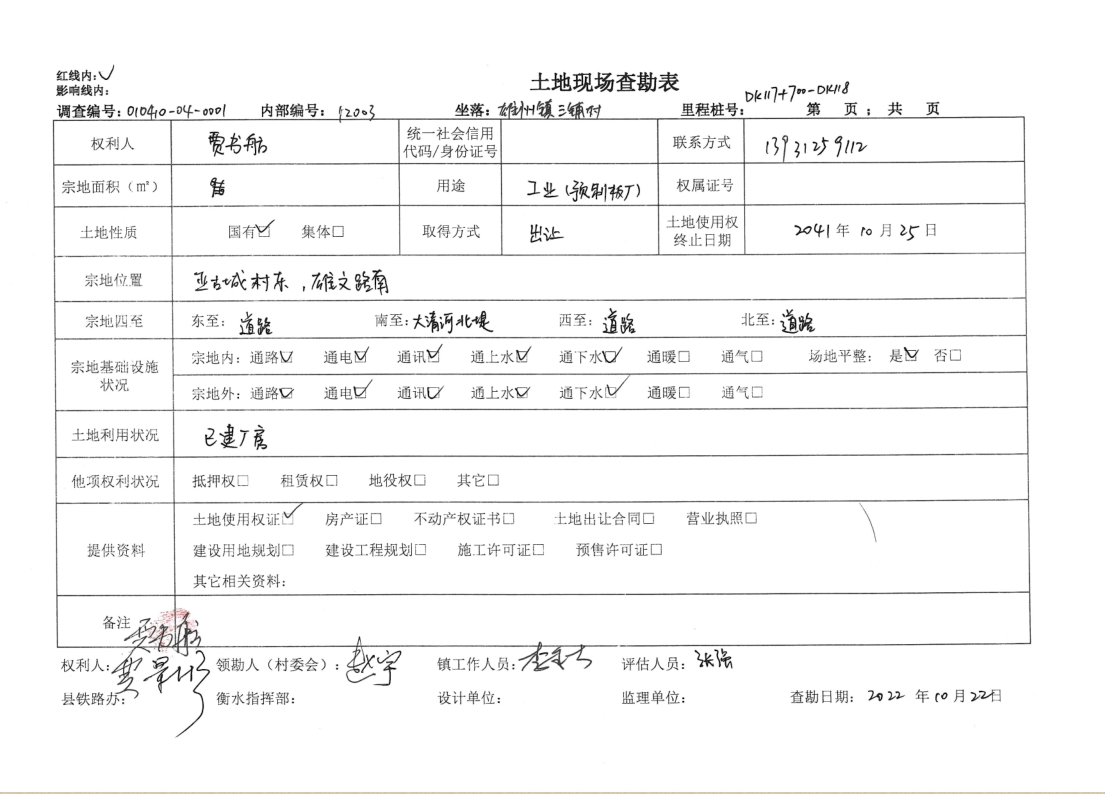 红线内:✓
影响线内:
土地现场查勘表
调查编号: 010410-04-0001 内部编号: 12003 坐落: 雄州镇三铺村 里程桩号: DK117+700-DK118 第 页; 共 页
权利人 贾书舫 统一社会信用代码/身份证号 联系方式 13931259112
宗地面积（㎡） 用途 工业(预制板厂) 权属证号
土地性质 国有☑ 集体□ 取得方式 出让 土地使用权终止日期 2041年10月25日
宗地位置 亚古城村东,雄文路南
宗地四至 东至: 道路 南至: 大清河北堤 西至: 道路 北至: 道路
宗地基础设施状况 宗地内: 通路☑ 通电☑ 通讯☑ 通上水☑ 通下水☑ 通暖□ 通气□ 场地平整: 是☑ 否□
宗地外: 通路☑ 通电☑ 通讯☑ 通上水☑ 通下水☑ 通暖□ 通气□
土地利用状况 已建厂房
他项权利状况 抵押权□ 租赁权□ 地役权□ 其它□
提供资料 土地使用权证☑ 房产证□ 不动产权证书□ 土地出让合同□ 营业执照□
建设用地规划□ 建设工程规划□ 施工许可证□ 预售许可证□
其它相关资料:
备注
贾书舫
权利人: 领勘人（村委会）: 赵宇 镇工作人员: 评估人员: 张强
县铁路办: 衡水指挥部: 设计单位: 监理单位: 查勘日期: 2022年10月22日